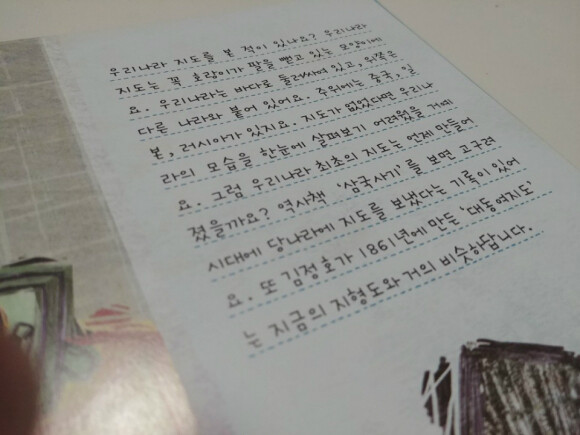 우리나라 지도를 본 적이 있나요? 우리나라
지도는 꼭 호랑이가 팔을 뻗고 있는 모양이에
요. 우리나라는 바다로 둘러싸여 있고, 위쪽은
다른 나라와 붙어 있어요. 주위에는 중국, 일
본, 러시아가 있지요. 지도가 없었다면 우리나
라의 모습을 한눈에 살펴보기 어려웠을 거예
요. 그럼 우리나라 최초의 지도는 언제 만들어
졌을까요? 역사책 ‘삼국사기’를 보면 고구려
시대에 당나라에 지도를 보냈다는 기록이 있어
요. 또 김정호가 1861년에 만든 ‘대동여지도’
는 지금의 지형도와 거의 비슷하답니다.